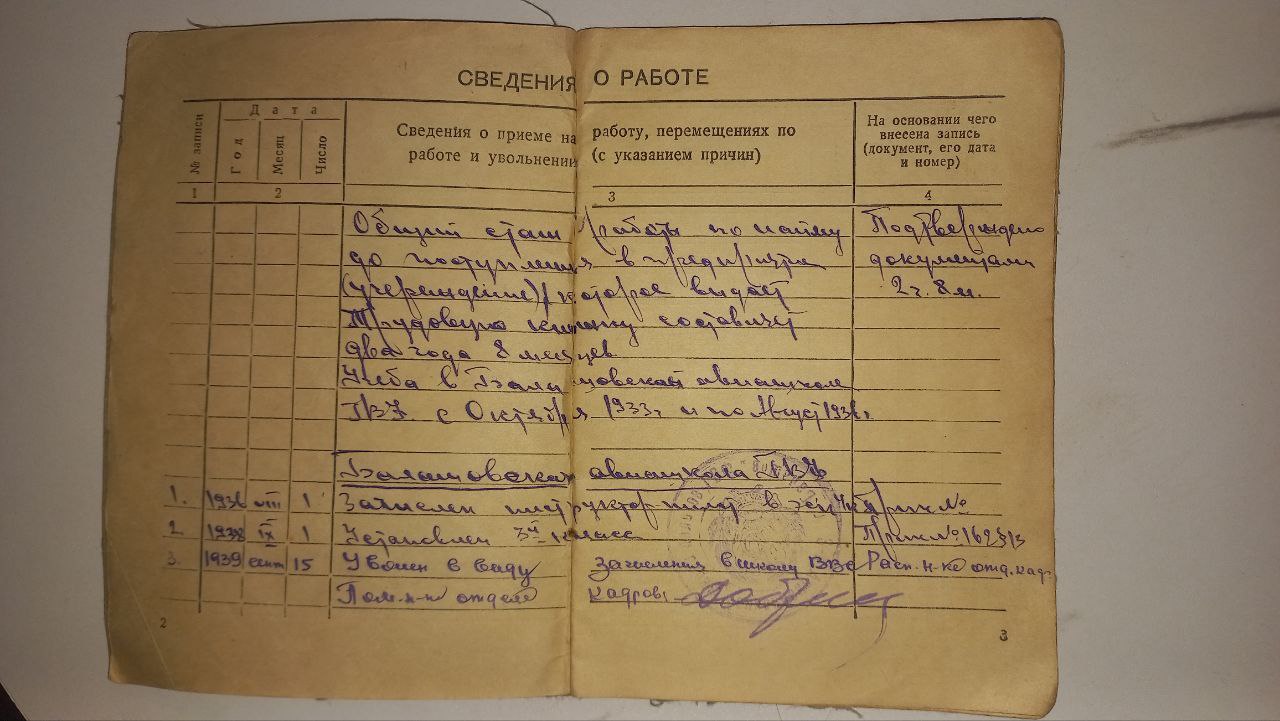 СВЕДЕНИЯ О РАБОТЕ
№ записи
Дата
Год
Месяц
Число
Сведения о приеме на работу, перемещениях по
работе и увольнении (с указанием причин)
На основании чего
внесена запись
(документ, его дата
и номер)
1 2 3 4
Общий стаж работы по найму Подтверждено
до поступления в предприятие документами
(учреждение) которое выдает 2 г. 8 м.
Трудовую книжку составляет
два года 8 месяцев
Учеба в Балашовской авиашколе
ГВФ с Октября 1933г и по Август 1936г.
Балашовская авиашкола ГВФ
1. 1936 VIII 1 Зачислен инструктор пилот в Прик №
2. 1938 IX 1 Установлен 3й класс Прик №
3. 1939 сент 15 Уволен в виду зачисления в школу ВВС Расп. н-ка отд. кад.
Пом. н-ка отдела кадров:
2
3